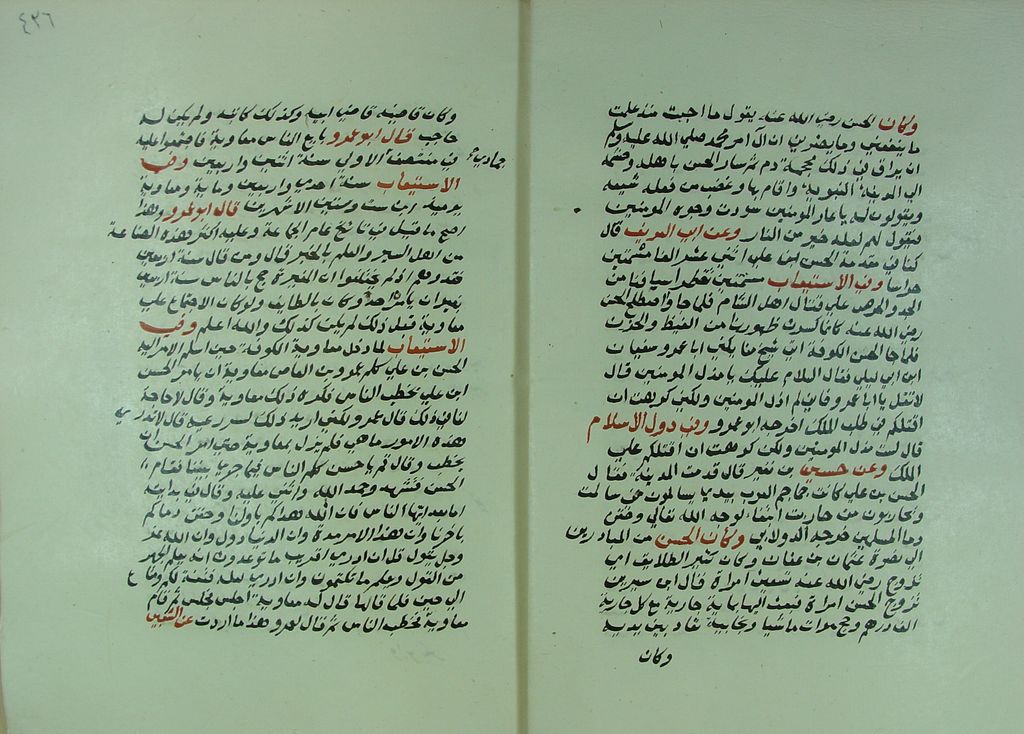 وكان الحسن رضي الله عنه يقول ما احببت منذ علمت
ما ينفعني وما يضرني ان الى امر محمد صلى الله عليه وسلم
ان يراق في ذلك محجمة دم ثم سار الحسن باهله وحشمه
الى المدينة النبوية واقام بها وغضب من فعله شيعته
ويقولون له يا عار المومنين سودت وجوه المومنين
فيقول لهم لعله خير من النار وعن ابي العريف قال
كنا في مقدمة الحسن ابن علي اثني عشر الفا
وفي الاستيعاب تقطر اسيافنا من
الجد على قتال اهل الشام فلما جاء صلح الحسن
رضي الله عنه كانما كسرت ظهورنا من الغيظ والحزن
فلما جاء الحسن الكوفة اتى شيخ منا يكنى ابا عمرو سفيان
ابن ابي ليلى فقال السلام عليك يا مذل المومنين قال
لا تقل يا ابا عمرو فاني لم اذل المومنين ولكني كرهت ان
اقتلكم في طلب الملك اخرجه ابو عمرو وفي دول الاسلام
قال لست مذل المومنين ولكن كرهت ان اقتلكم على
الملك وعن بن نفير قال قدمت المدينة فقال
الحسن بن علي كانت جماجم العرب بيدي يسالمون من سالمت
ويحاربون من حاربت ابتغاء لوجه الله تعالى وحقن
دماء المسلمين خرجه الدولابي وكان الحسن من المبادرين
الى نصرة عثمان بن عفان وكان كثير الطلاق
تزوج رضي الله عنه سبعين امراة قال ابن سيرين
تزوج الحسن امراة فبعث اليها بماية جارية مع كل جارية
الف درهم وحج مرات ماشيا ونجايبه تقاد بين يديه
وكان
٤٢٦
وكان قاضيه قاضي ابيه وكذلك كاتبه ولم يكن له
حاجب قال ابو عمرو بايع الناس معاوية فاجتمعوا عليه
في منتصف جمادى الاولى سنة اثنتين واربعين وفي
الاستيعاب سنة احدى واربعين ومعاوية
يوميذ ابن ست وستين الا شهرين قال ابو عمرو وهذا
اصح ما قيل في تاريخ عام الجماعة وعليه اكثر هذه الصناعة
من اهل السير والعلم بالخبر قال ومن قال سنة اربعين
فقد وهم اذ لم يختلفوا ان المغيرة حج بالناس سنة اربعين
من غير ان يامره احد وكان بالطايف ولو كان الاجتماع على
معاوية قبل ذلك لم يكن كذلك والله اعلم وفي
الاستيعاب لما دخل معاوية الكوفة حين اسلم الامر اليه
الحسن بن علي كلم عمرو بن العاص معاوية ان يامر الحسن
ابن علي يخطب الناس فكره ذلك معاوية وقال لا حاجة
لنا في ذلك قال عمرو ولكني اريد ذلك ليبدو عيه فانه لا يدري
هذه الامور ما هي فلم يزل بمعاوية حتى امر الحسن ان
يخطب وقال قم يا حسن كلم الناس فيما جرى بيننا فقام
الحسن فتشهد وحمد الله واثنى عليه وقال في بداية
اما بعد ايها الناس فان الله هداكم باولنا وحقن دماكم
باخرنا وان لهذا الامر مدة وان الدنيا دول وان الله عز
وجل يقول قل ان ادري اقريب ما توعدون انه يعلم الجهر
من القول ويعلم ما تكتمون وان ادري لعله فتنة لكم ومتاع
الى حين فلما قالها قال له معاوية اجلس فجلس ثم قام
معاوية فخطب الناس ثم قال لعمرو هذا ما اردت عن الشعبي